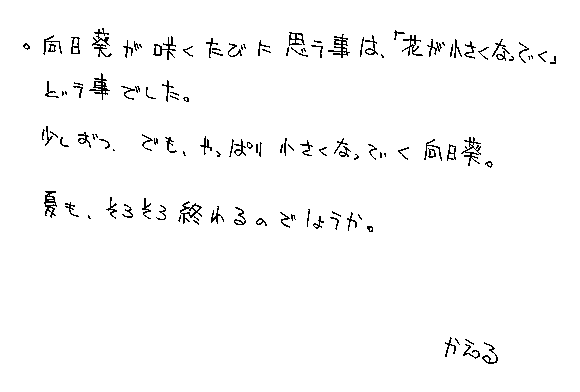 。向日葵が咲くたびに思う事は、「花が小さくなっていく」
という事でした。
少しずつ、でも、やっぱり小さくなっていく向日葵。
夏も、そろそろ終わるのでしょうか。
かえる